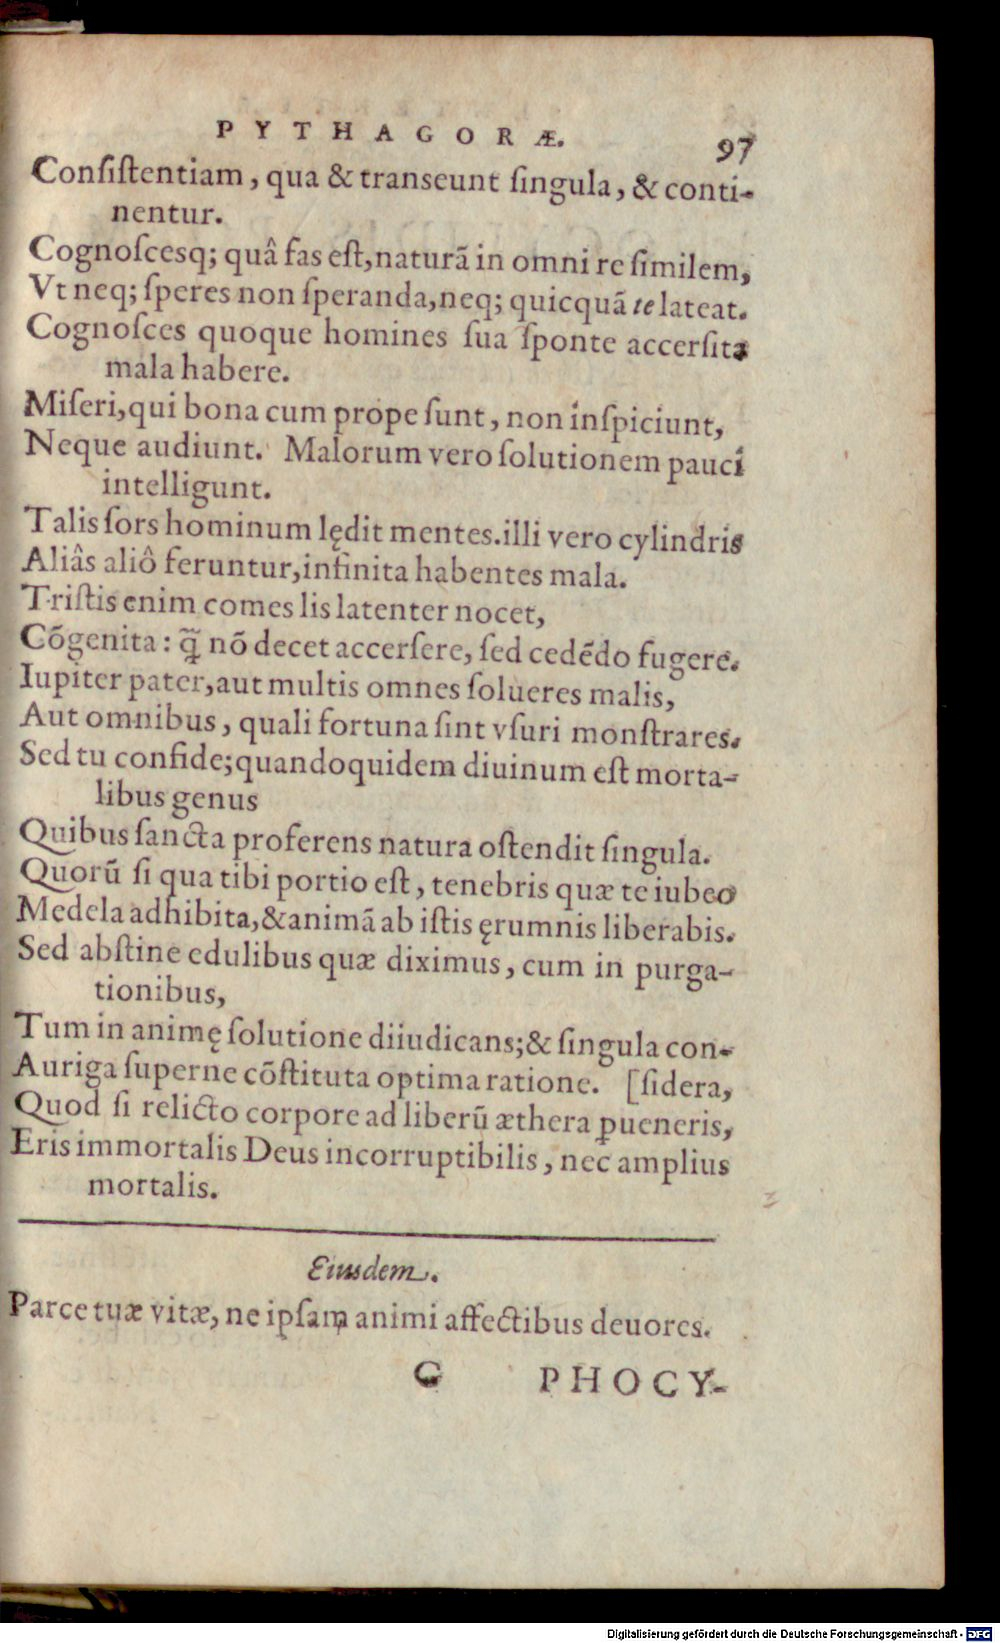 PYTHAGORÆ. 97
Conſiſtentiam, qua & tranſeunt ſingula, & conti-
nentur.
Cognoſcesq; quâ fas eſt, naturã in omni re ſimilem,
Vt neq; ſperes non ſperanda, neq; quicquã te lateat.
Cognoſces quoque homines ſua ſponte accerſita
mala habere.
Miſeri, qui bona cum prope ſunt, non inſpiciunt,
Neque audiunt. Malorum vero ſolutionem pauci
intelligunt.
Talis ſors hominum lędit mentes. illi vero cylindris
Aliâs aliô feruntur, infinita habentes mala.
Triſtis enim comes lis latenter nocet,
Cõgenita: q̃ nõ decet accerſere, ſed cedẽdo fugere.
Iupiter pater, aut multis omnes ſolueres malis,
Aut omnibus, quali fortuna ſint vſuri monſtrares.
Sed tu confide; quandoquidem diuinum eſt morta-
libus genus
Quibus ſancta proferens natura oſtendit ſingula.
Quorũ ſi qua tibi portio eſt, tenebris quæ te iubeo
Medela adhibita, & animã ab iſtis ęrumnis liberabis.
Sed abſtine edulibus quæ diximus, cum in purga-
tionibus,
Tum in animę ſolutione diiudicans; & ſingula con-
Auriga ſuperne cõſtituta optima ratione. [ſidera,
Quod ſi relicto corpore ad liberũ æthera ꝑueneris,
Eris immortalis Deus incorruptibilis, nec amplius
mortalis.
Eiusdem.
Parce tuæ vitæ, ne ipſam animi affectibus deuores.
G PHOCY-
Digitalisierung gefördert durch die Deutsche Forschungsgemeinschaft - DFG